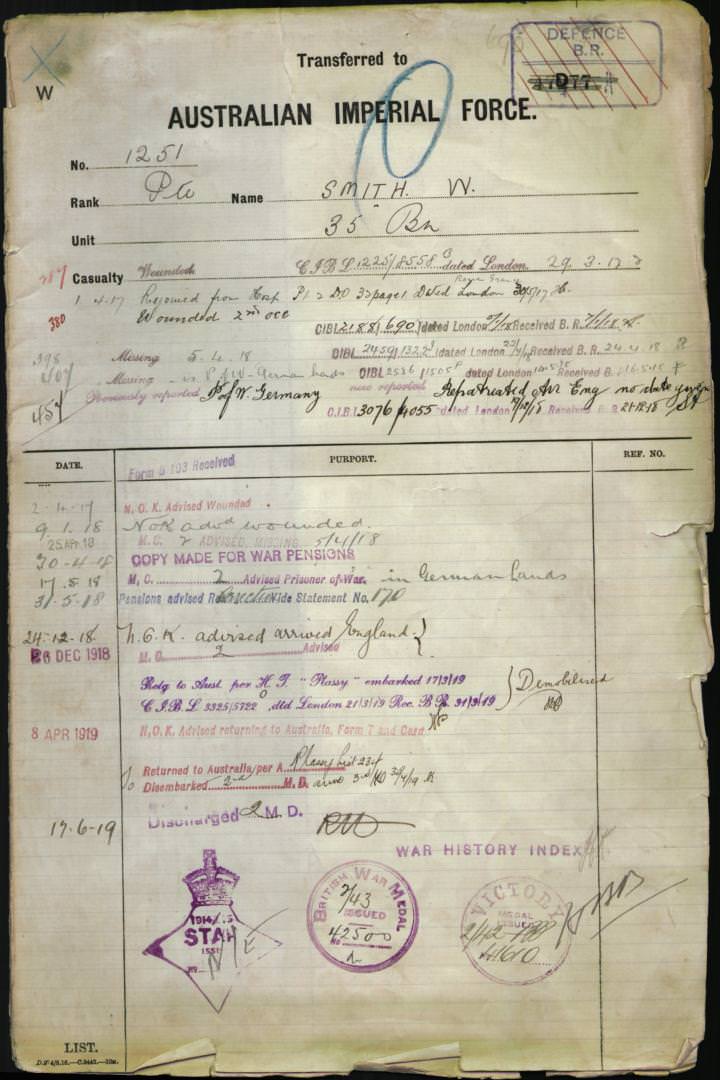 DEFENCE
B.R.
Transferred to
W
AUSTRALIAN IMPERIAL FORCE.
No. 1251
Rank Pte Name SMITH. W.
Unit 35 Bn
Casualty Wounded C.I.B L 1225/8558 dated London. 29.3.17
1.4.17 Rejoined from Hosp
380 Wounded 2nd occ
CIBL 2188/690 dated London Received B.R.
398 Missing 5.4.18 CIBL 2459 dated London Received B.R. 24.4.18
407 Missing German hands CIBL 2536 dated London Received B. 16.5.18
Previously reported P of W. Germany now reported Repatriated arr Eng no date given
457 C.I.B.L 3076/4055 dated London Received B.R. 21.12.18
DATE. PURPORT. REF. NO.
Form B 103 Received
2.4.17 N.O.K. Advised Wounded
9.1.18 NOK advd wounded.
25 APR 18 M.C. 2 ADVISED, MISSING 5/4/18
30-4-18 COPY MADE FOR WAR PENSIONS
17.5.18 M.C. 2 Advised Prisoner of War. in German hands
31-5-18 Pensions advised Vide Statement No. 170
24-12-18 N.O.K. advised arrived England
26 DEC 1918 M.C. 2 Advised
Retg to Aust per H.T. "Plassy" embarked 17/3/19
C.I.B L 3325/5722 dtd London 21/3/19 Rec. B.R. 31/3/19 Demobilised
8 APR 1919 N.O.K. Advised returning to Australia, Form T and Card
Returned to Australia/per A Plassy List 234
Disembarked 2nd M.D.
17-6-19 Discharged 2 M.D.
WAR HISTORY INDEX
1914/15
STAR
BRITISH WAR MEDAL
ISSUED
No 42500
VICTORY
MEDAL
ISSUED
LIST.